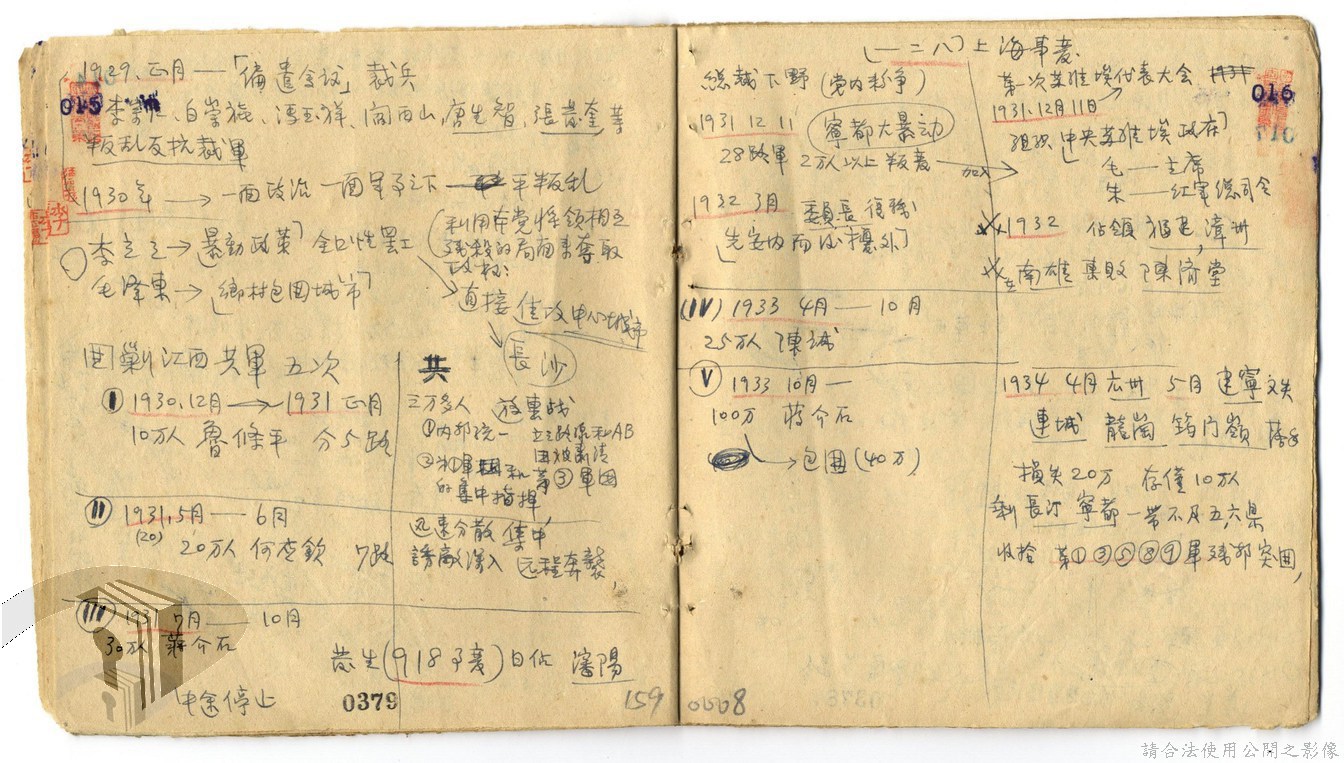 1929.正月 — 「偏遣会议」裁兵
015
李崇仁、白崇禧、馮玉祥、阎西山、唐生智、張發奎 等
叛乱反抗裁軍
1930年 → 一面政治 一面軍事之下 — 平叛乱
李立之 → 「暴動政策」全国性罷工
(利用本党将领相互
残殺的局面来奪取
政权:
毛澤東 → 「鄉村包围城市」
直接進攻中心城市
長沙
围剿江西共軍 五次
I 1930.12月 → 1931 正月
10万人 魯條平 分5路
共
三万多人 放棄战
①内部统一 立三路線和AB
团被肃清
的集中指揮 等 ③ 軍团
II 1931.5月 — 6月
(20)
20万人 何应欽 7路
迅速分散 集中
誘敵深入 远程奔襲,
III 1931 7月 — 10月
30万人 蒋介石
中途停止
發生(918事变)日佔 瀋陽
0379
159
(一二八)上海事变.
總裁下野 (党内紛争)
1931 12 11 寧都大暴动
28路軍 2万人以上叛变 → 加入
1932 3月 委員長復職
「先安内而後攘外」
(IV) 1933 4月 — 10月
25万人 陳誠
V 1933 10月 —
100万 蒋介石
→ 包围(40万)
0008
第一次苏維埃代表大会
1931.12月11日
016
组织「中央苏維埃政府」
毛 — 主席
朱 — 红軍總司令
1932 佔領 福建,漳州
在南雄 棄敗 陳济堂
1934 4月 広州 5月 建寧 文失
連城 龍崗 筠门嶺
損失20万 存僅10万人
剩長汀 寧都一带不及五、六県
收拾 第①③⑤⑧⑨軍残部突围,
請合法使用公開之影像